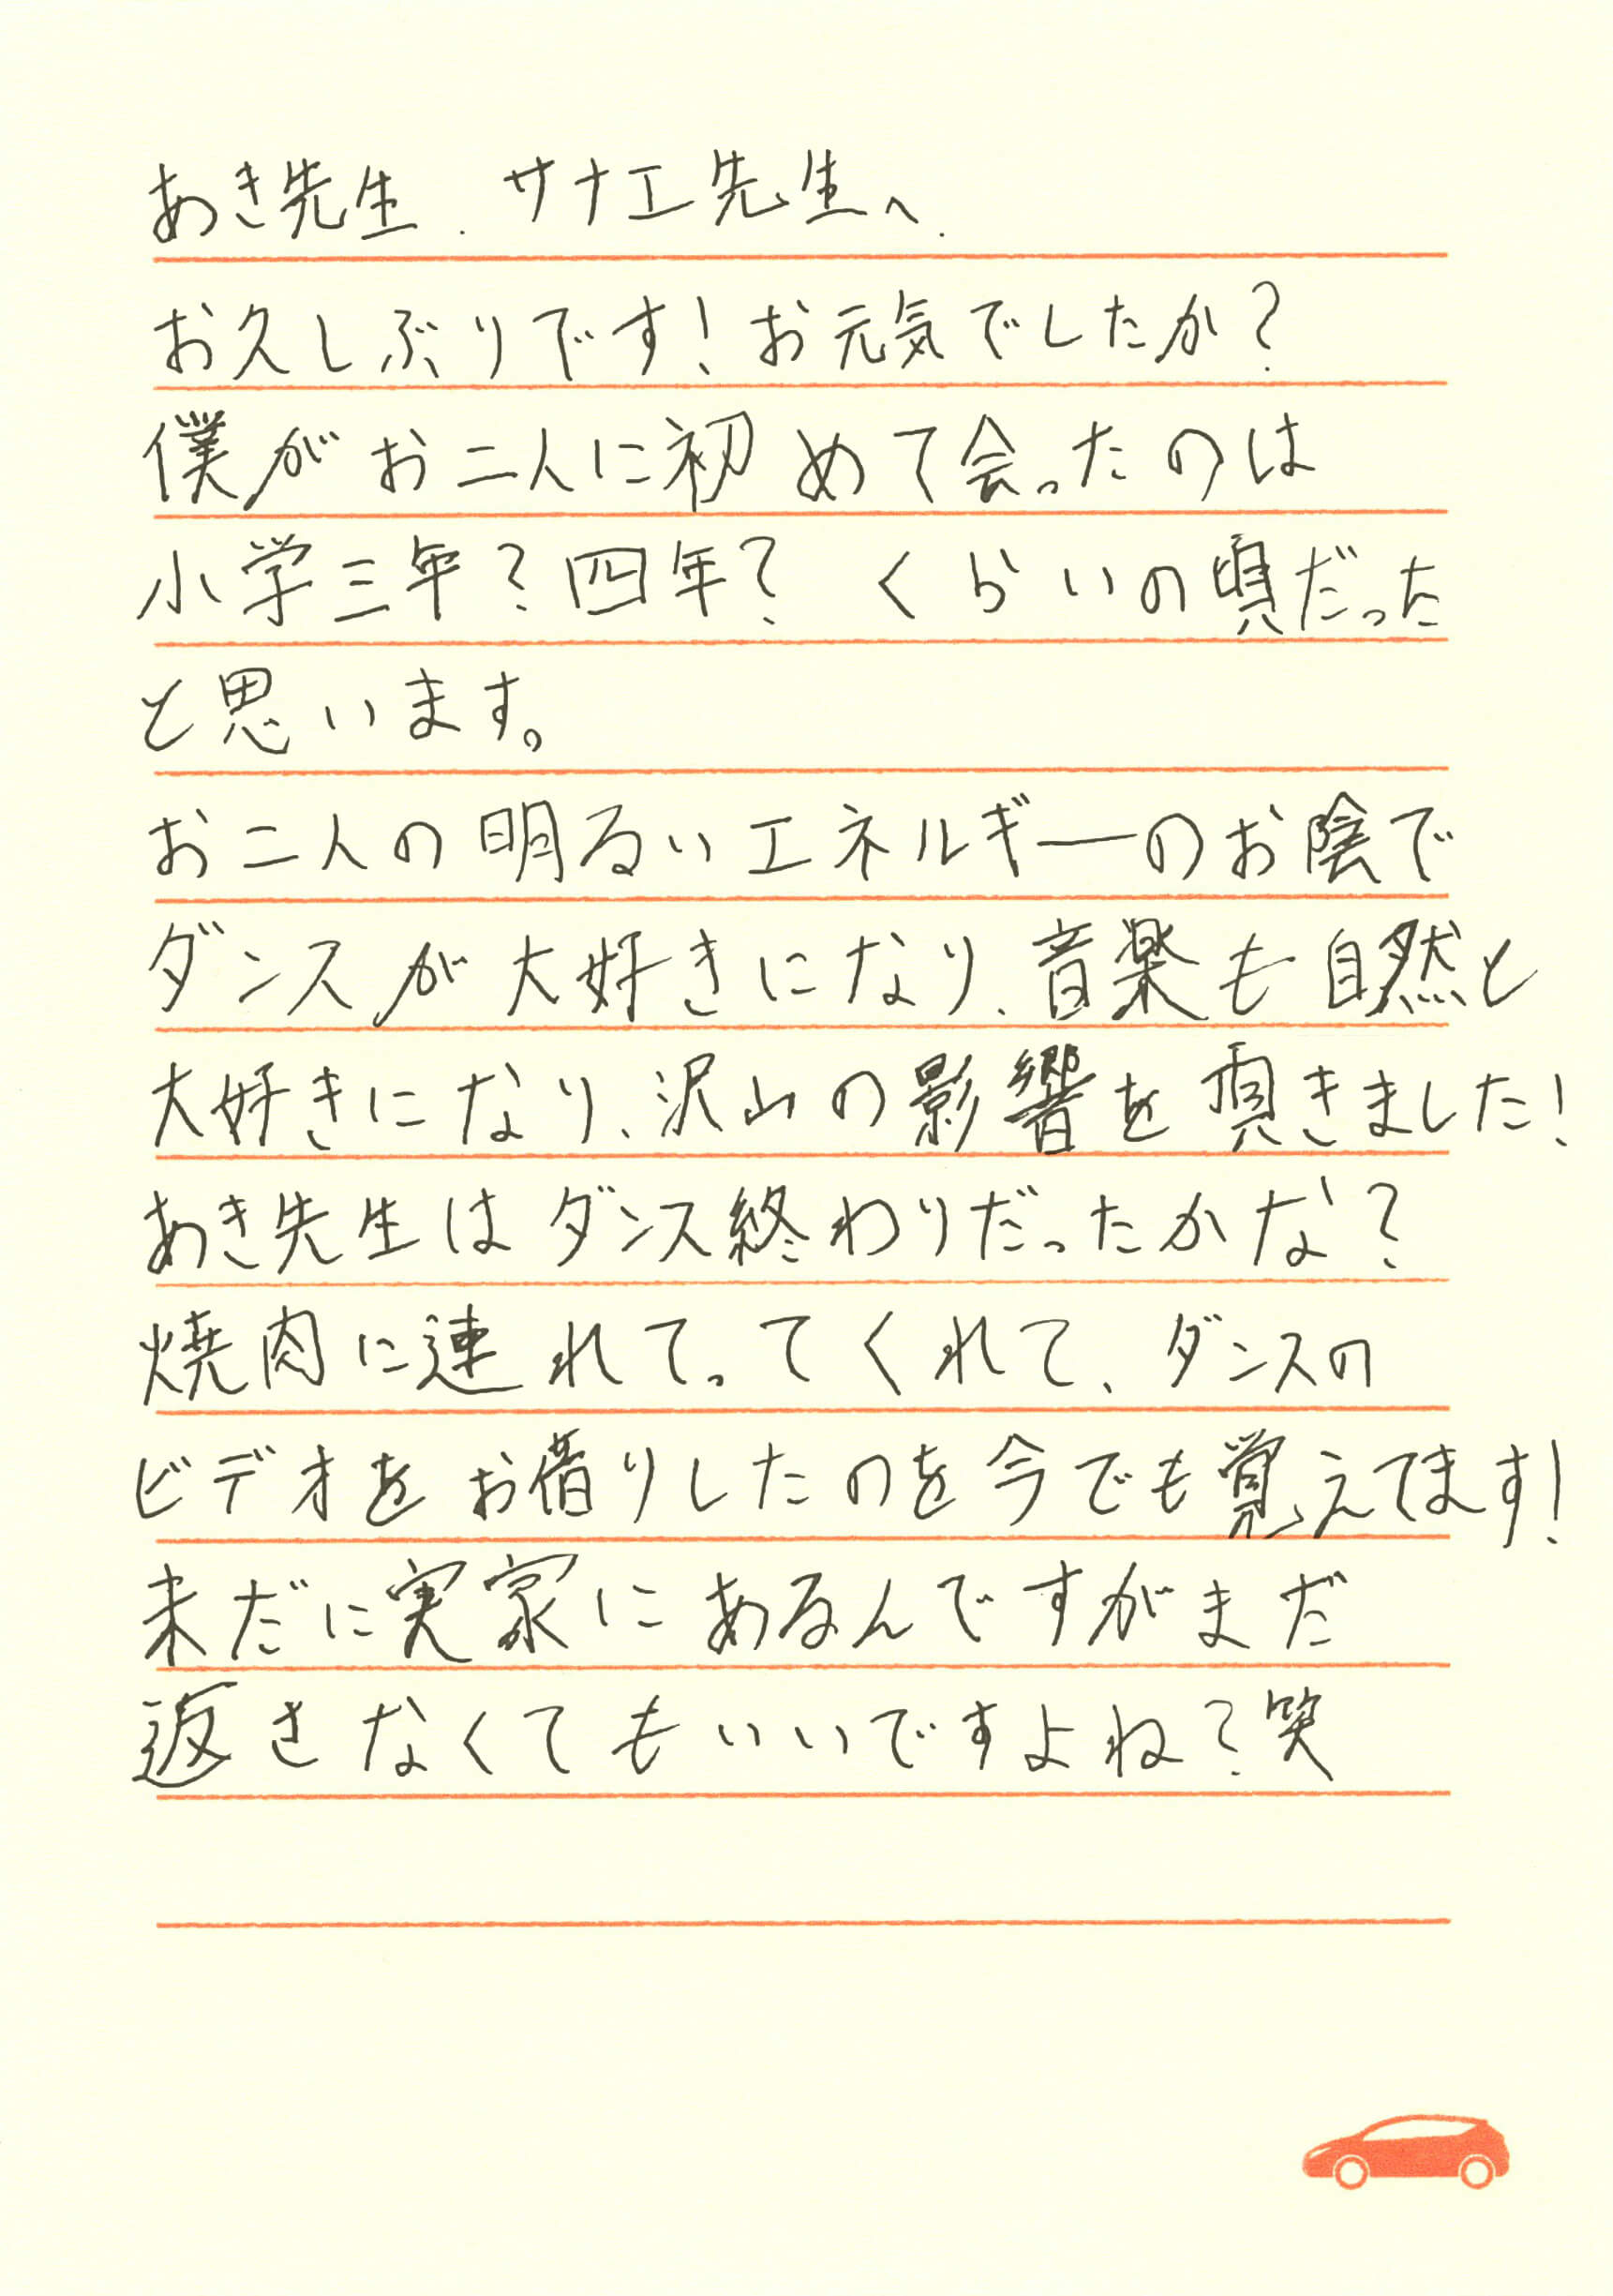 あき先生、サナエ先生へ.
お久しぶりです!お元気でしたか?
僕がお二人に初めて会ったのは
小学三年?四年? くらいの頃だった
と思います。
お二人の明るいエネルギーのお陰で
ダンスが大好きになり、音楽も自然と
大好きになり、沢山の影響を頂きました!
あき先生はダンス終わりだったかな?
焼肉に連れてってくれて、ダンスの
ビデオをお借りしたのを今でも覚えてます!
未だに実家にあるんですがまだ
返さなくてもいいですよね?笑